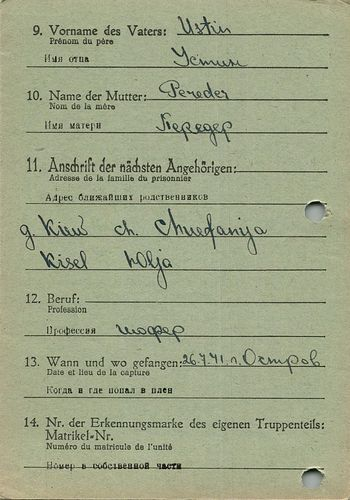 9. Vorname des Vaters: Ustin
Prénom du père
Имя отца Устин
10. Name der Mutter: Pereder
Nom de la mère
Имя матери Передер
11. Anschrift der nächsten Angehörigen:
Adresse de la famille du prisonnier
Адрес ближайших родственников
g. Kiew ch.
Kisel Olja
12. Beruf:
Profession
Профессия шофер
13. Wann und wo gefangen: 26.7.41 г. Остров
Date et lieu de la capture
Когда и где попал в плен
14. Nr. der Erkennungsmarke des eigenen Truppenteils:
Matrikel-Nr.
Numéro du matricule de l'unité
Номер в собственной части